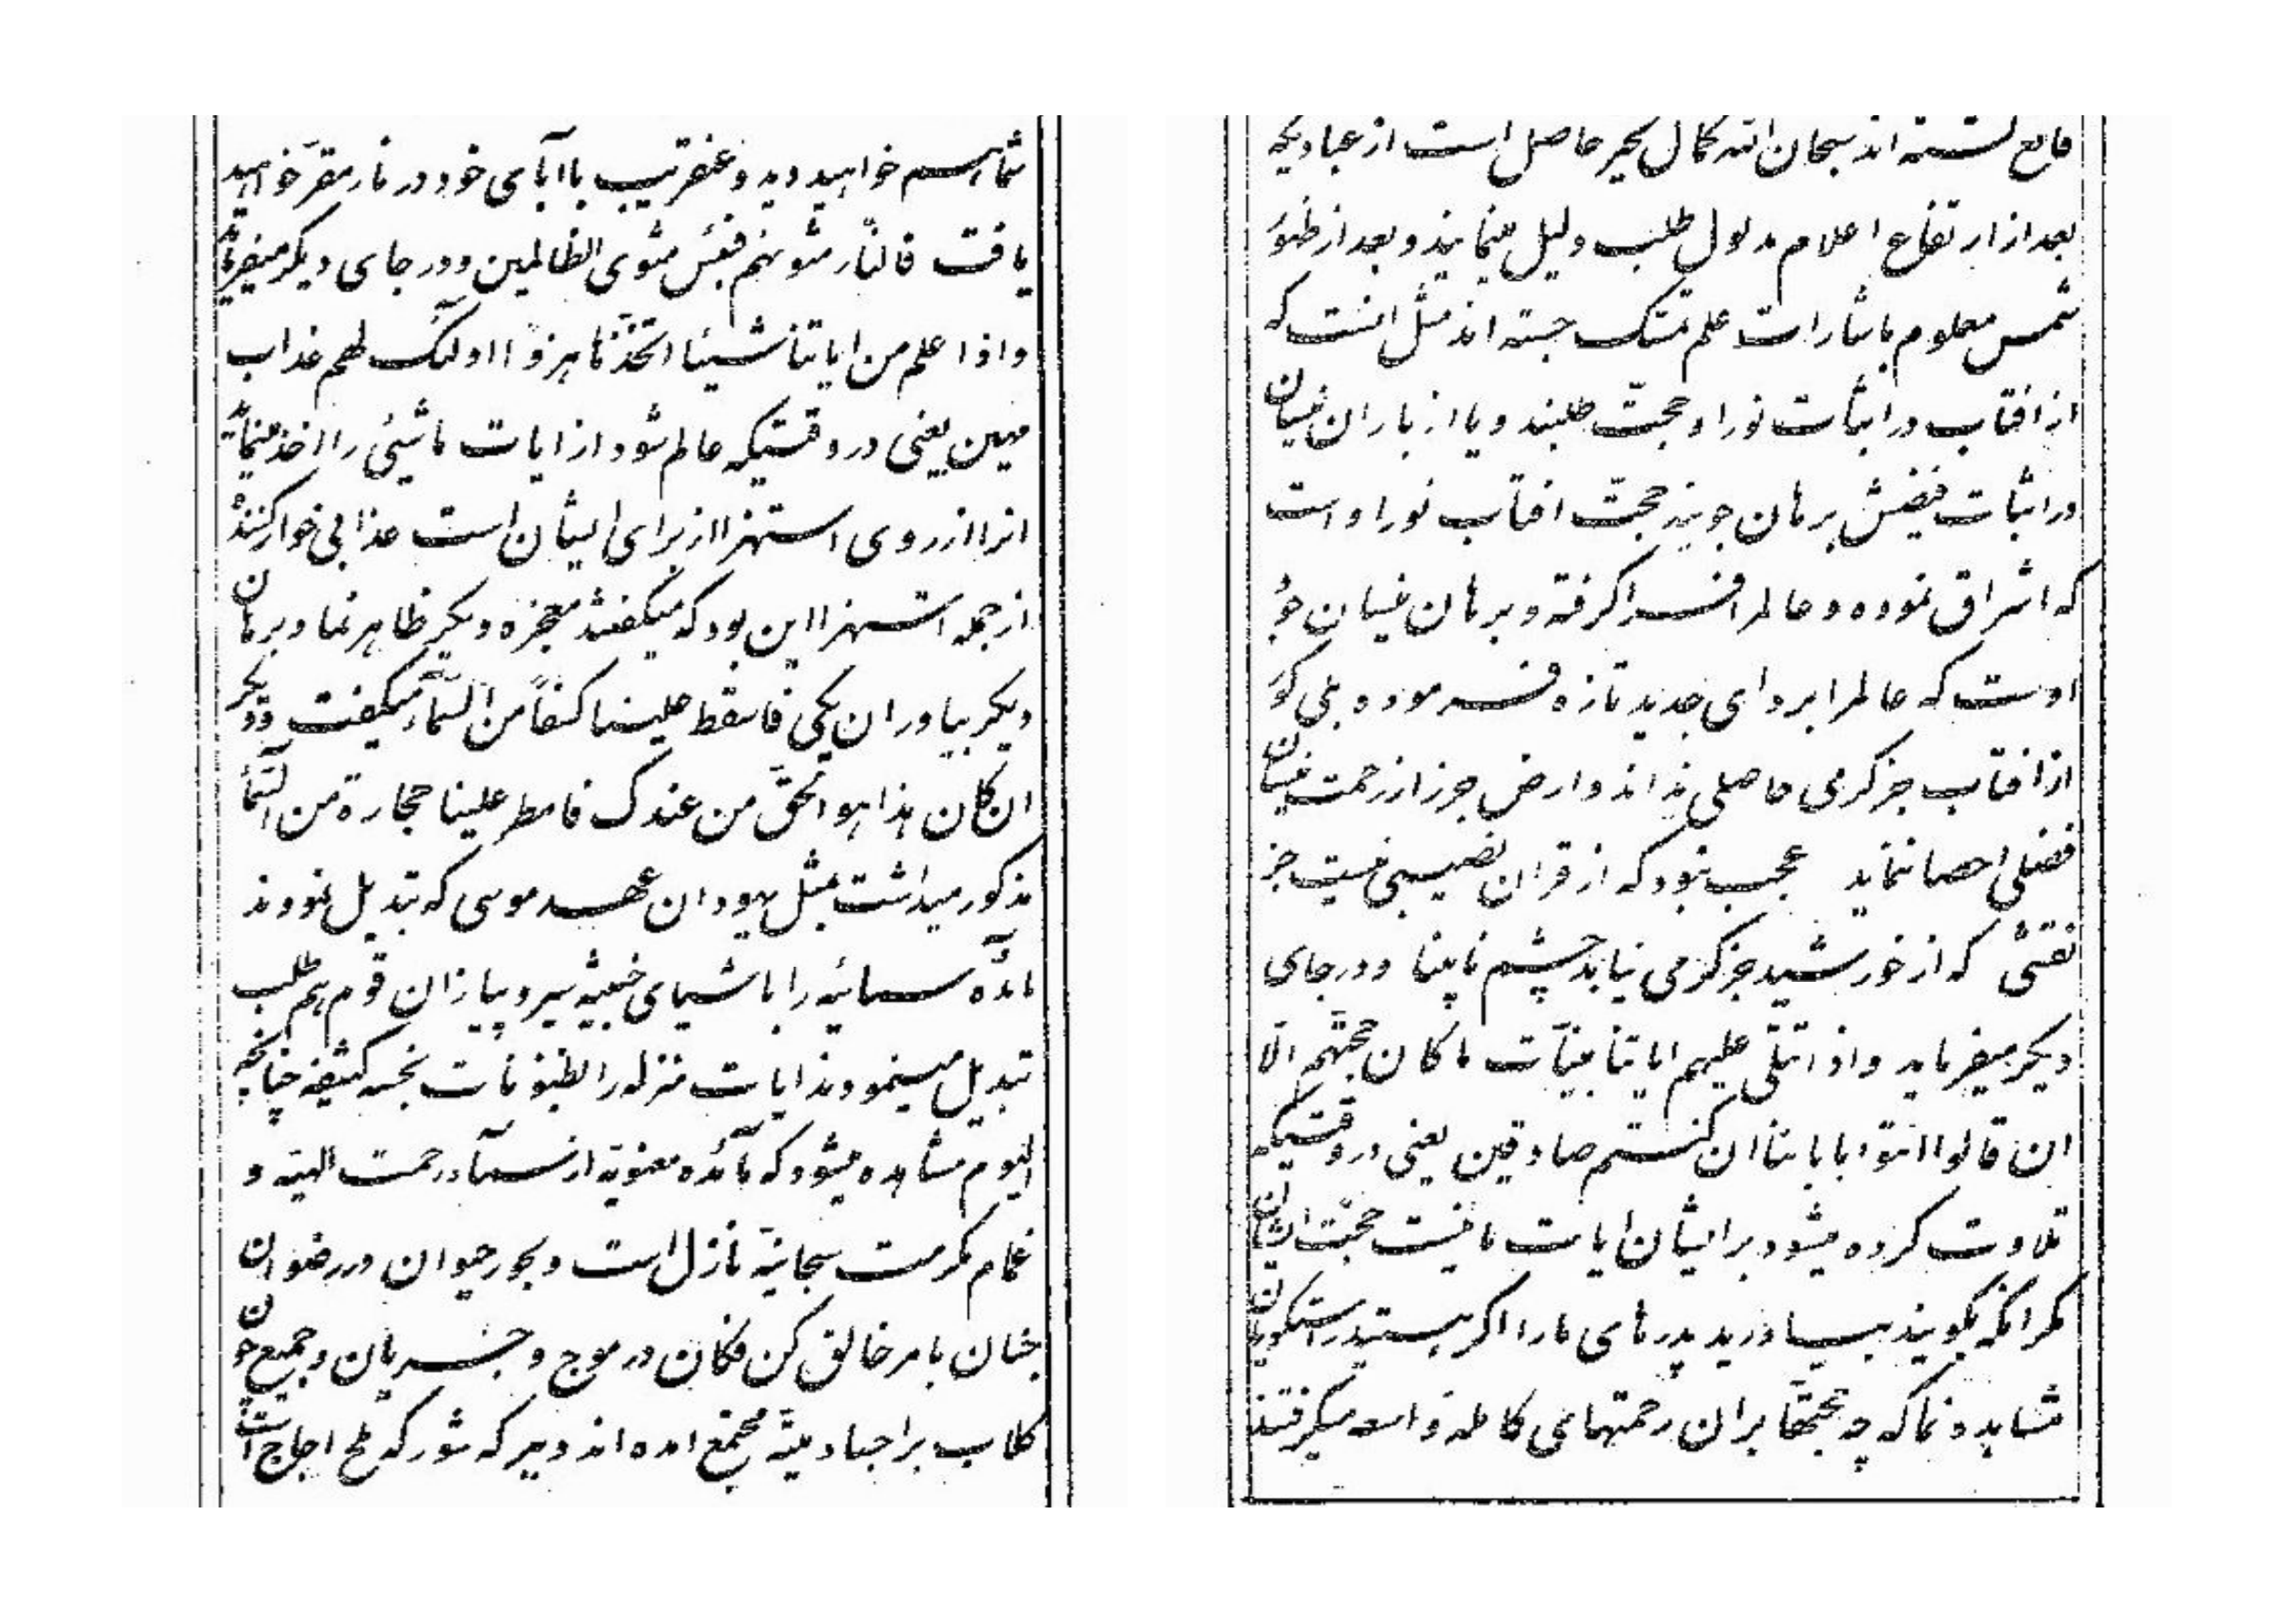 قانع گشته اند سبحان الله کمال تحیر حاصل است از عبادیکه
بعد از ارتفاع اعلام مدلول طلب دلیل مینمایند و بعد از ظهور
شمس معلوم باشارات علم تمسک جسته اند مثل انست که
از افتاب در اثبات نور او حجت طلبند و یا از باران نیسان
در اثبات فیضش برهان جویند حجت افتاب نور او است
که اشراق نموده و عالم را فرا گرفته و برهان نیسان جود
اوست که عالم را بردای جدید تازه فرموده بلی کور
از افتاب جز گرمی حاصلی نداند و ارض جرز از رحمت نیسان
فضلی احصا ننماید عجب نبود که از قران نصیبی نیست جز
نقشی که از خورشید جز گرمی نیابد چشم نابینا و در جای
دیگر میفرماید و اذا تتلی علیهم ایاتنا بینات ما کان حجتهم الا
ان قالوا ائتوا بابائنا ان کنتم صادقین یعنی در وقتیکه
تلاوت کرده میشود بر ایشان ایات ما نیست حجت ایشان
مگر انکه بگویند بیاورید پدرهای ما را اگر هستید راستگویان
مشاهده نما که چه حجتها بر ان رحمتهای کامله واسعه میگرفتند
شما هم خواهید دید و عنقریب با آبای خود در نار مقر خواهید
یافت فالنار مثویهم فبئس مثوی الظالمین و در جای دیگر میفرماید
و اذا علم من ایاتنا شیئا اتخذها هزوا اولئک لهم عذاب
مهین یعنی در وقتیکه عالم شود از ایات ما شیئی را اخذ مینماید
انرا از روی استهزا از برای ایشان است عذابی خوار کننده
از جمله استهزا این بود که میگفتند معجزه دیگر ظاهر نما و برهان
دیگر بیاور ان یکی فاسقط علینا کسفاً من السماء میگفت و دیگر
ان کان هذا هو الحق من عندک فامطر علینا حجارة من السماء
مذکور میداشت بمثل یهودان عهد موسی که تبدیل نمودند
مائده سمائیه را باشیای خبیثه سیر و پیاز ان قوم هم طلب
تبدیل مینمودند ایات منزله را بظنونات نجسه کثیفه چنانچه
الیوم مشاهده میشود که مائده معنویه از سماء رحمت الهیه و
غمام مکرمت سبحانیه نازل است و بحور حیوان در رضوان
جنان بامر خالق کن فکان در موج و جریان و جمیع چون
کلاب بر اجساد میته مجتمع امده اند و ببرکه شور که ملح اجاج است